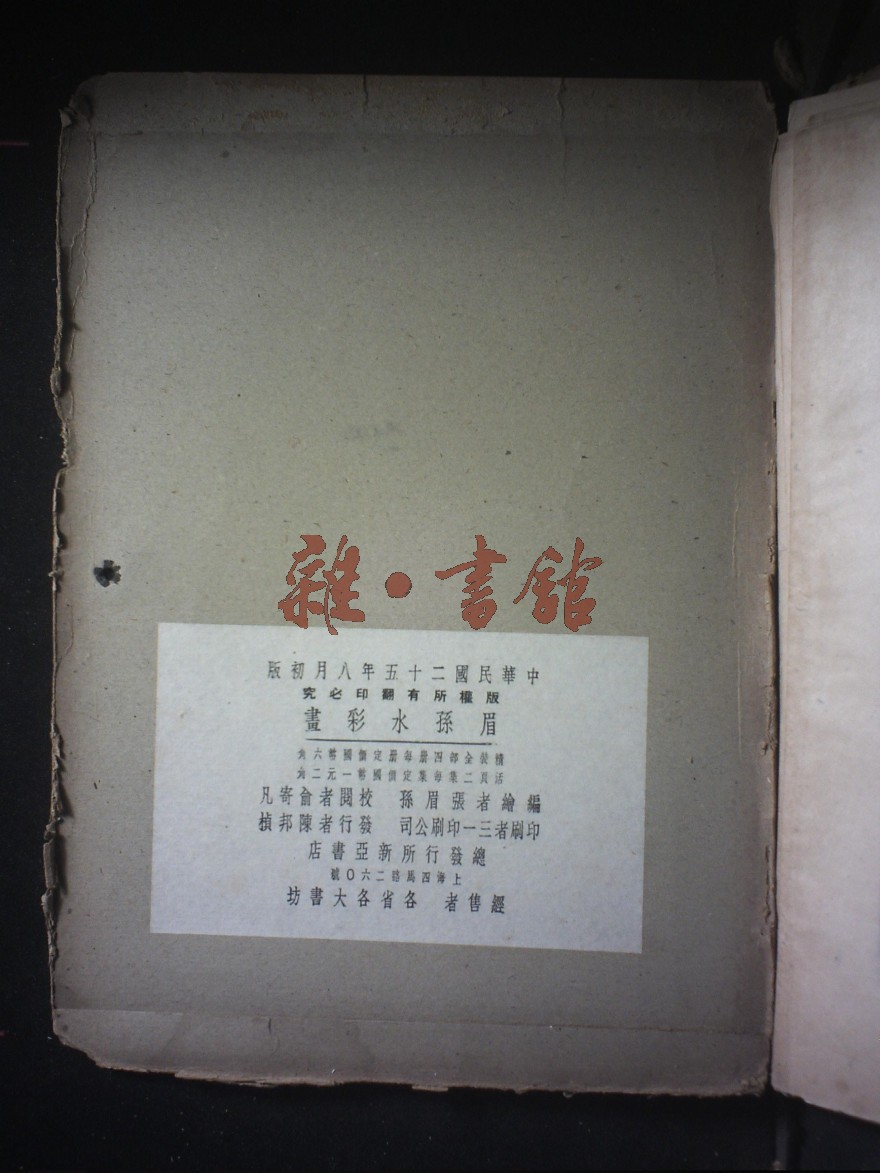 雜·書館
中華民國二十五年八月初版
版權所有翻印必究
眉孫水彩畫
精裝全部四册每册定價國幣六角
活頁二集每集定價國幣一元二角
編繪者張眉孫 校閱者俞寄凡
印刷者三一印刷公司 發行者陳邦楨
總發行所新亞書店
上海四馬路二六〇號
經售者 各省各大書坊